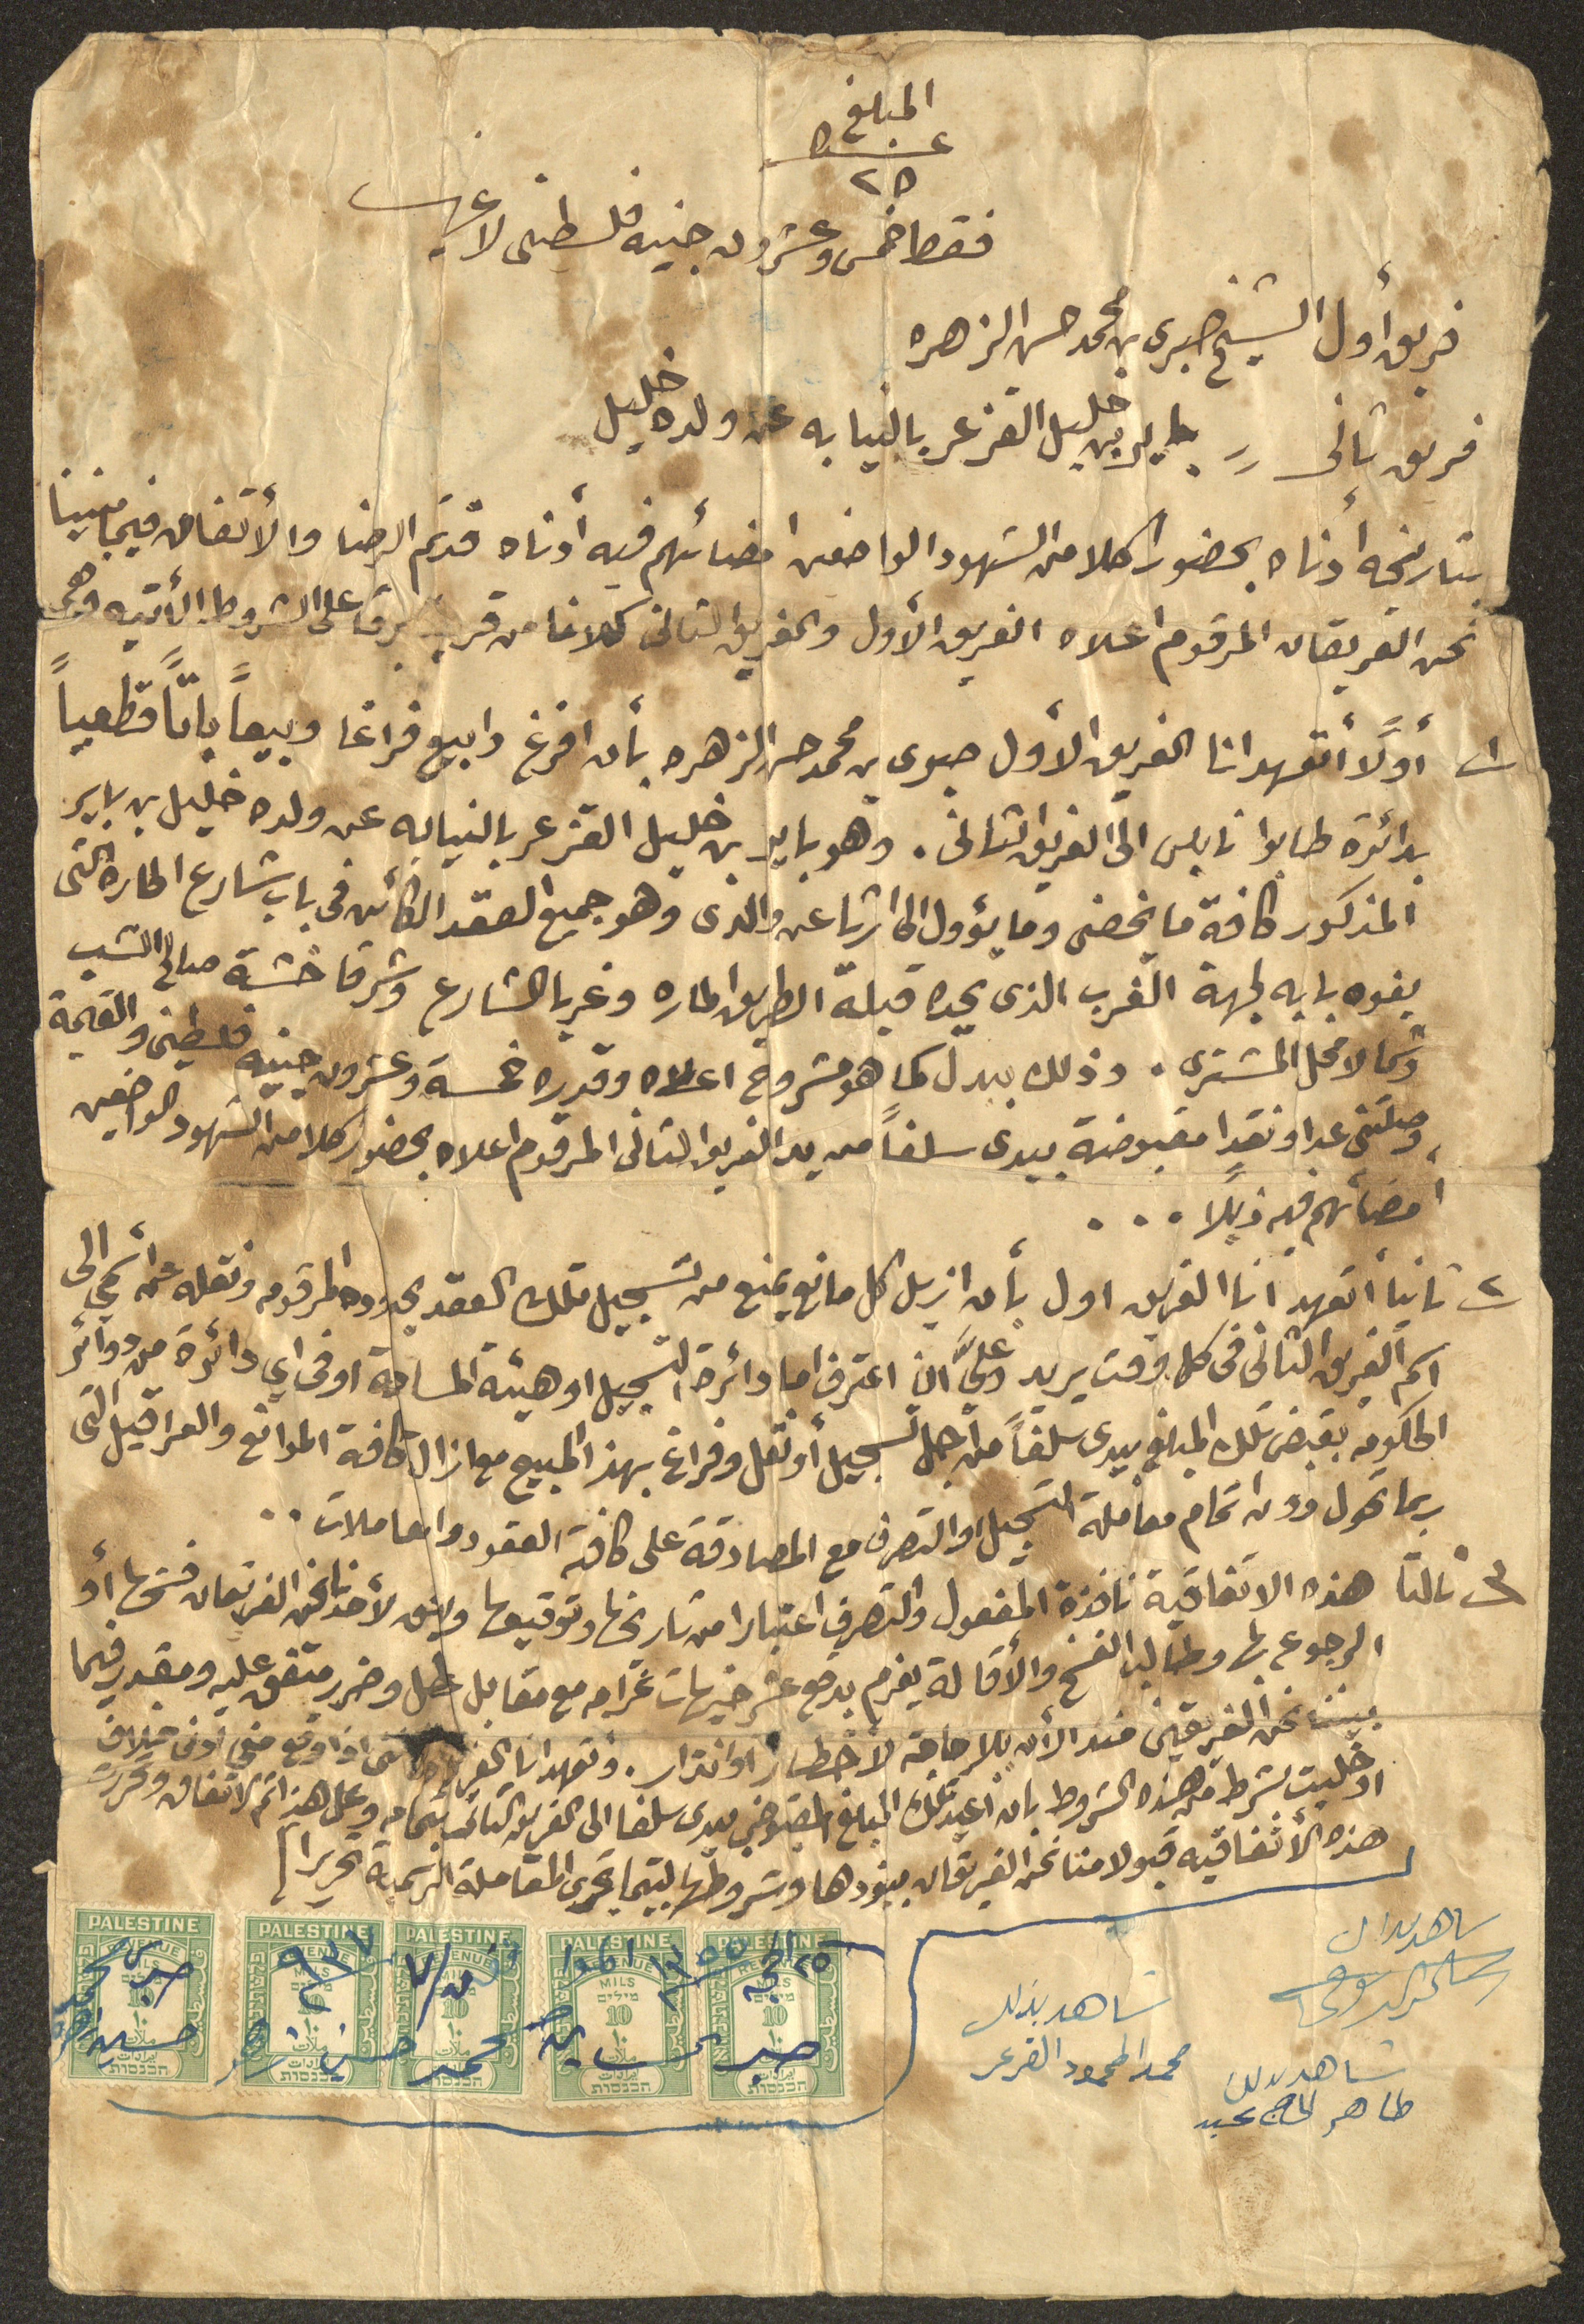 المبلغ
عدد
٢٥
فقط خمس وعشرون جنيه فلسطيني لا غير
فريق أول الشيخ صبري بن محمد حسن الزهره
فريق ثاني " باير بن خليل القزعر بالنيابه عن ولده خليل
بتاريخه أدناه بحضور كلا من الشهود الواضعين امضائهم فيه أدناه قد تم الرضا والأتفاق فيما بيننا
نحن الفريقان المرقوم اعلاه الفريق الأول والفريق الثاني كلانا من قرية برقا على الشروط الأتيه وهي
١ أولاً أتعهد انا الفريق الأول صبري بن محمد حسن الزهره بأن افرغ وابيع فراغا وبيعاً باتاً قطعياً
بدائرة طابوا نابلس الى الفريق الثاني . وهو باير بن خليل القزعر بالنيابه عن ولده خليل بن باير
المذكور كافة ما يخصني وما يؤول الي ارثا عن والدي وهو جميع العقد الكائن في باب شارع الحاره التي
يفوه بابه لجهة الغرب الذي يحده قبلة الطريق الماره وغربا الشارع وشرقا خشة صالح الشيب
وشمالا محل المشتري . وذلك ببدل كما هو مشروح اعلاه وقدره خمسة وعشرون جنيه فلسطيني والقيمة
وصلتني عدا ونقدا مقبوضة بيدي سلفاً من يد الفريق الثاني المرقوم اعلاه بحضور كلا من الشهود الواضعين
أمضائهم فيه ذيلاً . . .
٢ ثانياً أتعهد انا الفريق اول بأن ازيل كل مانع يمنع من تسجيل تلك العقد بحدوده المرقومه ونقله عن اسمي الى
اسم الفريق الثاني في كل وقت يريد وعليَّ ان اعترف امام دائرة التسجيل او هيئة المساحة او في اي دائرة من دوائر
الحكومه بقبض تلك المبلغ بيدي سلفاً من أجل تسجيل أو نقل وفراغ بهذ المبيع مع ازال كافة الموانع والعراقيل التي
ربما تحول دون اتمام معاملة التسجيل او التصرف مع المصادقة على كافة العقود والمعاملات . .
٣ ثالثا هذه الاتفاقية نافذة المفعول والتصرف اعتبارا من تاريخها وتوقيعها وليس لأحدنا نحن الفريقان فسخها أو
الرجوع بها وطالب الفسخ والأقالة يغرم بدفع عشر جنيهات غرامه مع مقابل عطل وضرر متفق عليه ومقدر فيما
بيننا نحن الفريقين منذ الأن بلا حاجة لأخطار او انذار . وتعهد انا الفريق اذا وقع مني أدنى خلاف
او خليت بشرط من هذه الشروط بان أعيد تلك المبلغ المقبوض بيدي سلفا الى الفريق الثاني بتمامه وعلى هذا تم الاتفاق وتحررت
هذه الأتفاقيه قبولا منا نحن الفريقان ببنودها وشروطها لبينما تجري المعاملة الرسمية تحريرا
شاهد بذلك
شاهد بذلك
محمد المحمود القزعر
شاهد بذلك
طاهر الحاج عبد
PALESTINE
REVENUE
MILS
10
PALESTINE
REVENUE
MILS
10
PALESTINE
REVENUE
MILS
10
PALESTINE
REVENUE
MILS
10
PALESTINE
REVENUE
MILS
10